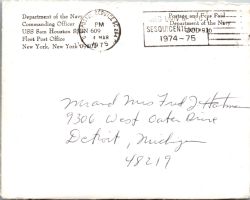 Department of the Navy
Commanding Officer
USS Sam Houston SSBN 609
Fleet Post Office
New York, New York
PM
1975
Postage and Fees Paid
Department of the Navy
SESQUICENTENNIAL
1974-75
Mr and Mrs Fred J Hotman
9306 West Outer Drive
Detroit, Michigan
48219